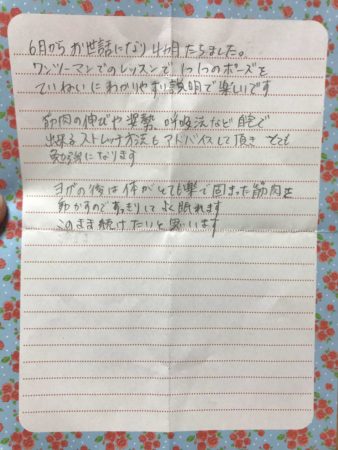 6月からお世話になり4ヶ月たちました。
ワンツーマンでのレッスンで1つ1つのポーズを
ていねいにわかりやすい説明で楽しいです
筋肉の伸びや姿勢 呼吸法など自宅で
出来るストレッチ方法もアドバイスして頂き とても
勉強になります
ヨガの後は体がとても楽で固まった筋肉を
動かすのですっきりしてよく眠れます
このまま続けたいと思います